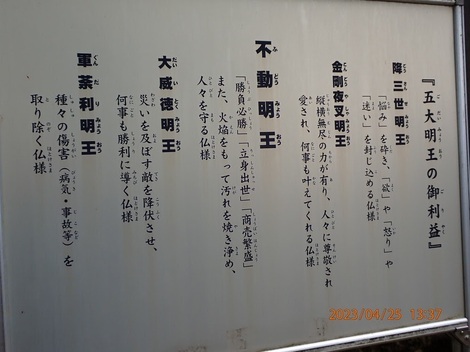 『五大明王の御利益』
降三世明王
「悩み」を砕き、「欲」や「怒り」や
「迷い」を封じ込める仏様
金剛夜叉明王
縦横無尽の力が有り、人々に尊敬され
愛され、何事も叶えてくれる仏様
不動明王
「勝負必勝」「立身出世」「商売繁盛」
また、火焔をもって汚れを焼き浄め、
人々を守る仏様
大威徳明王
災いを及ぼす敵を降伏させ、
何事も勝利に導く仏様
軍荼利明王
種々の傷害（病気・事故等）を
取り除く仏様
2023/04/25 13:37